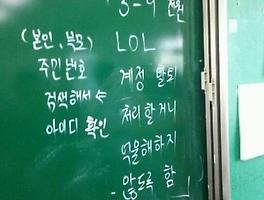 3-9 전원
(본인, 부모) LOL
주민번호 계정 탈퇴
검색해서 ← 처리할거니
아이디 확인 억울해하지
- 않도록 함